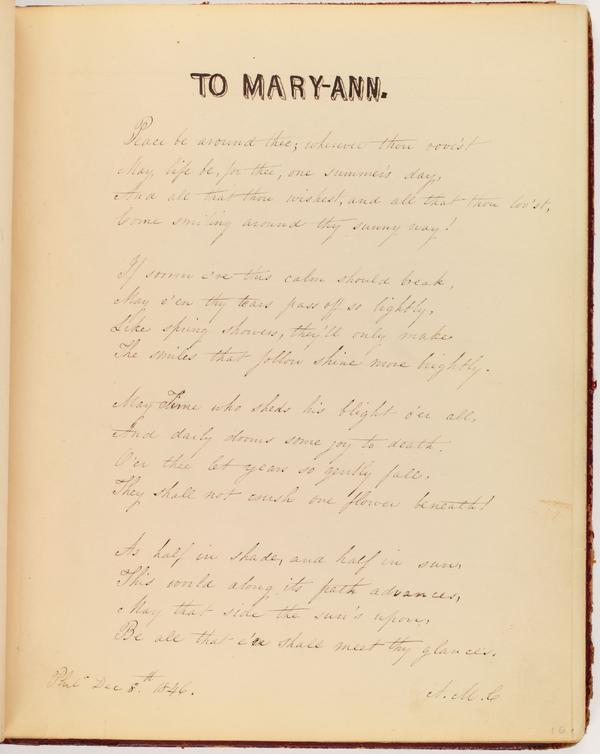 TO MARY-ANN.
Peace be around thee; wherever thou rove'st
May life be, for thee, one summer's day,
And all that thou wishest, and all that thou lov'st,
Come smiling around thy sunny way!
If sorrow e're this calm should break,
May e'en thy tears pass off so lightly,
Like spring showers, they'll only make
The smiles that follow shine more brightly.
May Time who sheds his blight o'er all,
And daily dooms some joy to death.
O'er thee let years so gently fall.
They shall not crush one flower beneath!
As half in shade, and half in sun,
This world along its path advances,
May that side the sun's upon,
Be all that e'er shall meet thy glances.
Phila Dec 8th 1846.
A. M. C